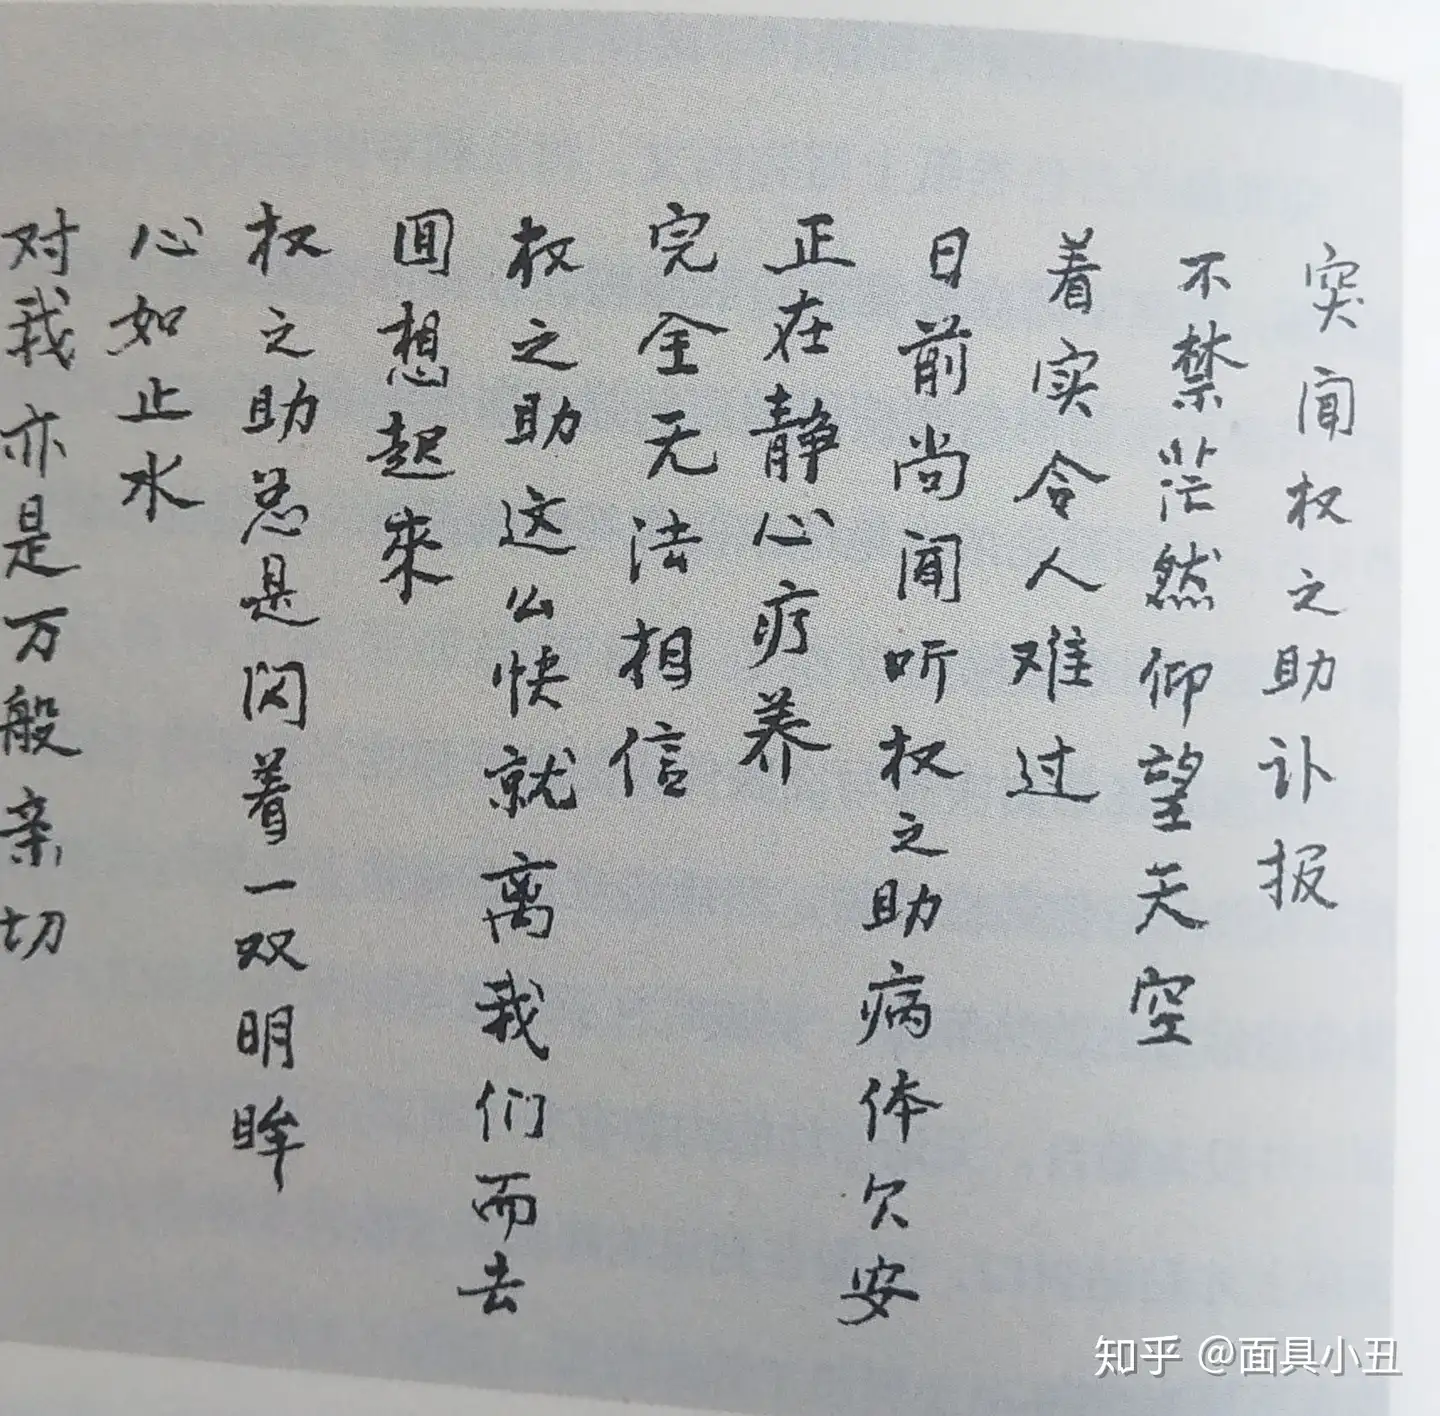 突闻权之助讣报
不禁茫然仰望天空
着实令人难过
日前尚闻听权之助病体欠安
正在静心疗养
完全无法相信
权之助这么快就离我们而去
回想起来
权之助总是闪着一双明眸
心如止水
对我亦是万般亲切
知乎 @面具小丑